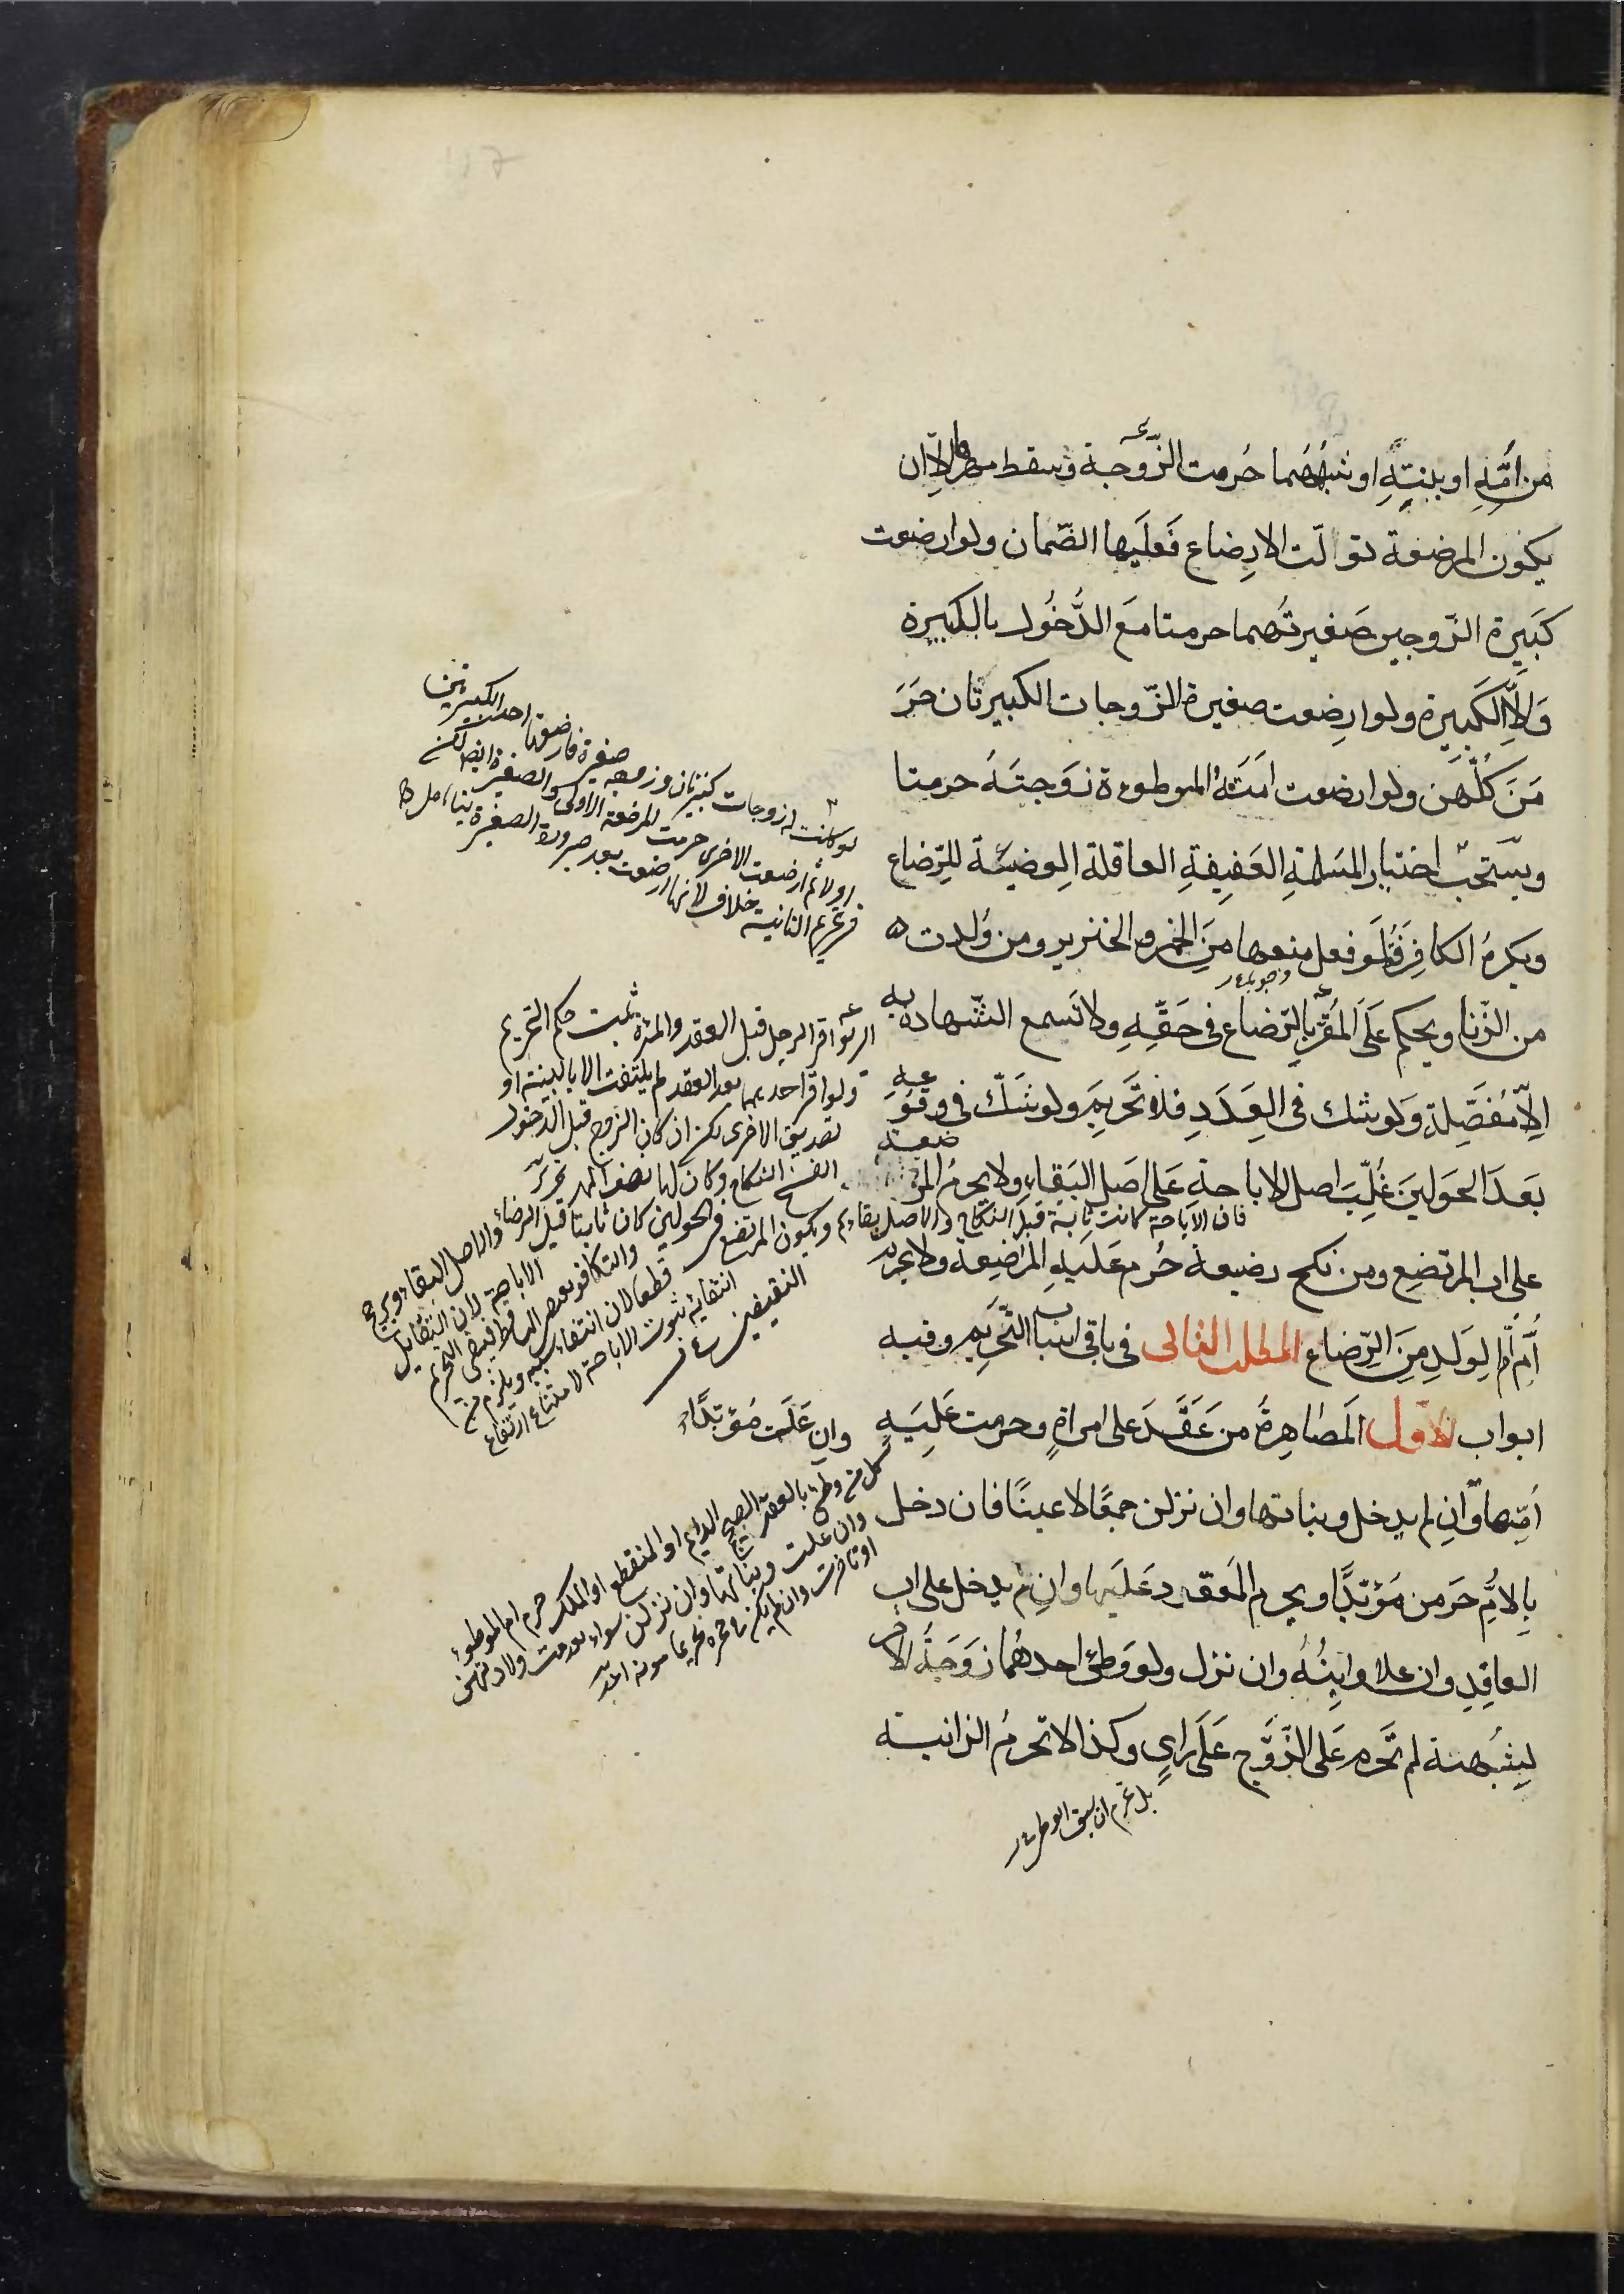 من امّه او بنته او شبههما حُرمت الزّوجة وسقط مهرها الّا ان
يكون المرضعة تولّت الارضاع فَعلَيها الضّمان ولو ارضعت
كَبيرة الزّوجين صَغيرتُهما حرمتا مَع الدُّخُول بالكبيرة
وَالّا الكَبيرة ولو ارضعت صغيرة الزّوجات الكبيرتان حَرَ
مَنَ كلّهن ولو ارضعت امَتَهُ الموطوءة زَوجتَهُ حرمتا
ويستحبّ اختيار المسَلمة العَفيفةِ العاقلة الوضيئة للرّضاع
ويكرهُ الكافِرَة فَلَو فعل منعها مِنَ الخمر والخنزير ومن وُلدت
وجوبا
من الزّنا ويحكم عَلَى المُقرّ بالرّضاع في حَقّهِ ولا تسمع الشّهادة به
الّا مُفَصّلة وَلو شك في العَدَدِ فلا تَحريمَ ولو شَكّ في وقوعه
بَعدَ الحَولينَ غُلِّبَ اصل الاباحة عَلى اصَل البَقاءِ ولا يحرمُ المرضعة
فان الاباحة كانت ثابتة قبل النكاح والاصل بقاءهم
على اب المرتضِع ومن نكح رضيعة حُرم عَلَيهِ المرَضِعة ولا يحرم
اُمّ اُمّ الوَلدِ مِنَ الرّضاع المطلب الثانى فى باقى اسباب التّحريم وفيه
ابواب الاوّل المَصاهِرةُ من عَقَدَ على امراةٍ وحرمت عَليَهِ
اُمّها وان لم يدخل وبناتها وان نزلن جمعًا لا عينًا فان دخل
بِالاُمّ حَرمن مُؤبّدًا ويحرم المَعقود عَلَيها وانِ لم يدخل على اب
العاقِدِ وان علا وابنُهُ وان نزل ولو وَطئ احدهُما زَوَجَةُ الاخر
لِشُبهة لم تَحرم عَلى الزّوَج عَلى رَاى وكذا لا تحرمُ الزانية
بل تحرم ان سبق الوطى
لو كانت له زوجات كبيرتان وزوجه صغيرة فارضعتها احد الكبيرتين
اولا ثم ارضعت الاخرى حرمت المرضعة الاولى والصغيرة ايضا لكن
فى تحريم الثانية خلاف لانها ارضعت بعد صيرورة الصغيرة بنتا
لو اقر الرجل قبل العقد والمدة ثبت حكم التحريم
ولو اقر احديهما بعد العقد لم يلتفت الا بالبينة او
تصديق الاخرى لكن ان كان الزوج قبل الدخول
انفسخ النكاح وكان لها نصف المهر تحرير
ويكون المرتضع فى الحولين كان ثابتا قبل الرضاع والاصل البقاء ويرجح
الاباحة لان التقابل
والتكافؤ يقتضى التساقط فينتفى التحريم
قطعا لان انتفاء سببه ويلزم من
انتفائه ثبوت الاباحة لامتناع ارتفاع
النقيضين
وان عَلَت مُؤبّدًا
كل من وطى بالعقد الصحيح الدايم او المنقطع او الملك حرم ام الموطوءة
وان علت وبناتها وان نزلن سواء تقدمت ولادتهن
او تاخرت وان لم يكن فى حجره تحريما مؤبدا